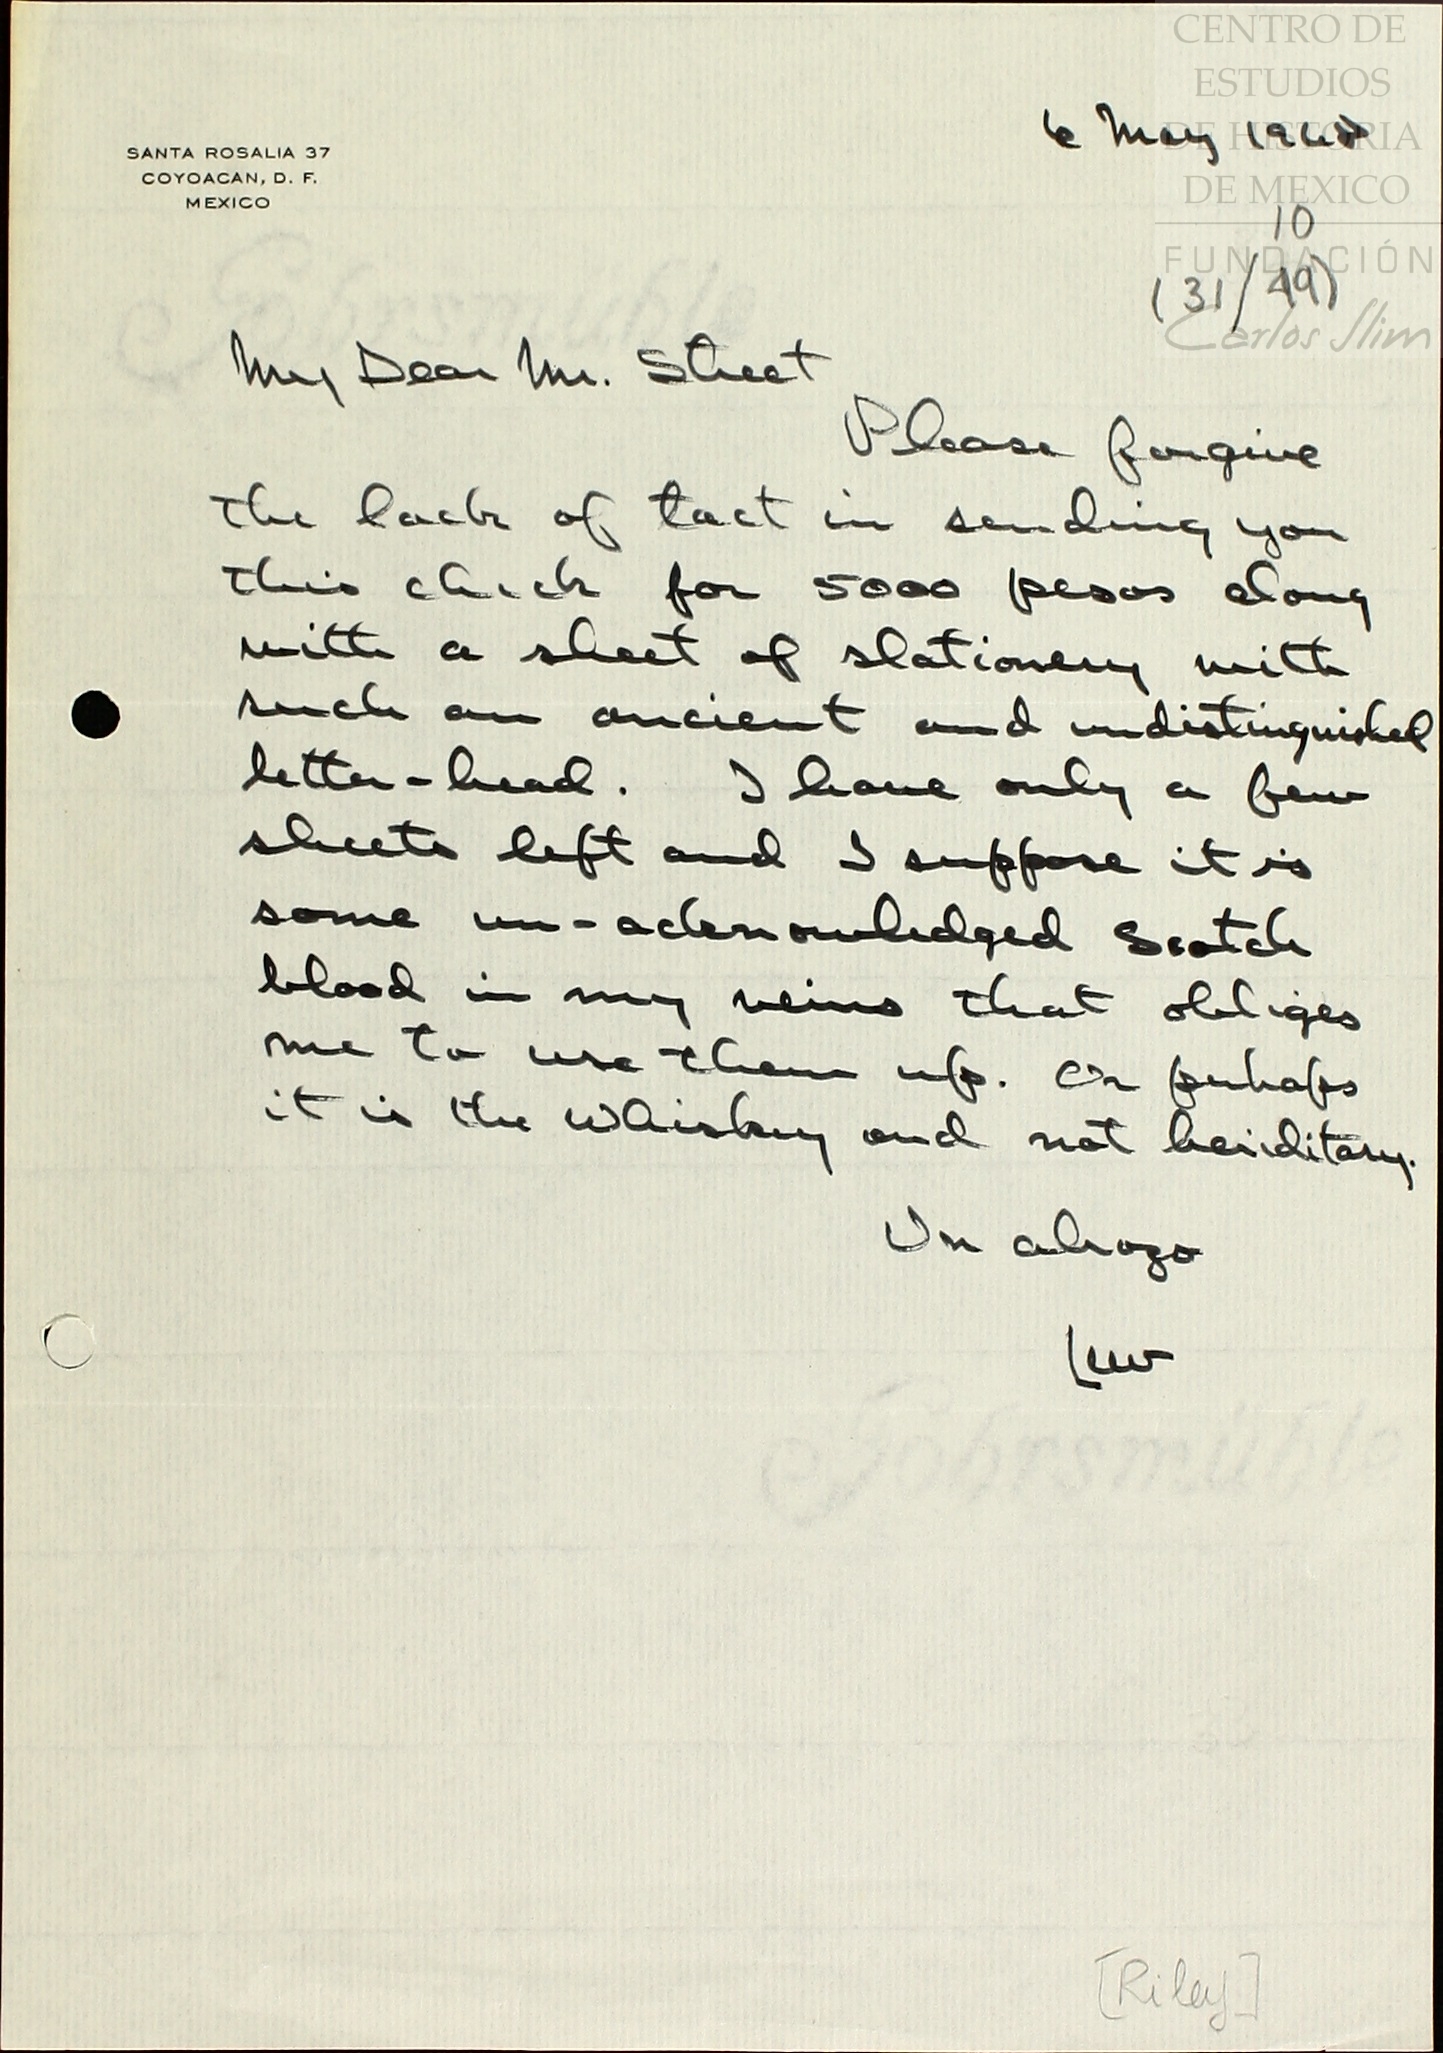 CENTRO DE
ESTUDIOS
DE HISTORIA
DE MEXICO
FUNDACIÓN
Carlos Slim
SANTA ROSALIA 37
COYOACAN, D. F.
MEXICO
6 May 1968
10
(31/49)
My Dear Mr. Street
Please forgive
the lack of tact in sending you
this check for 5000 pesos along
with a sheet of stationery with
such an ancient and undistinguished
letter-head. I have only a few
sheets left and I suppose it is
some un-acknowledged Scotch
blood in my veins that obliges
me to use them up. Or perhaps
it is the whiskey and not heriditary.
Un abrazo
Luis
[Riley]
Gohrsmühle
Gohrsmühle